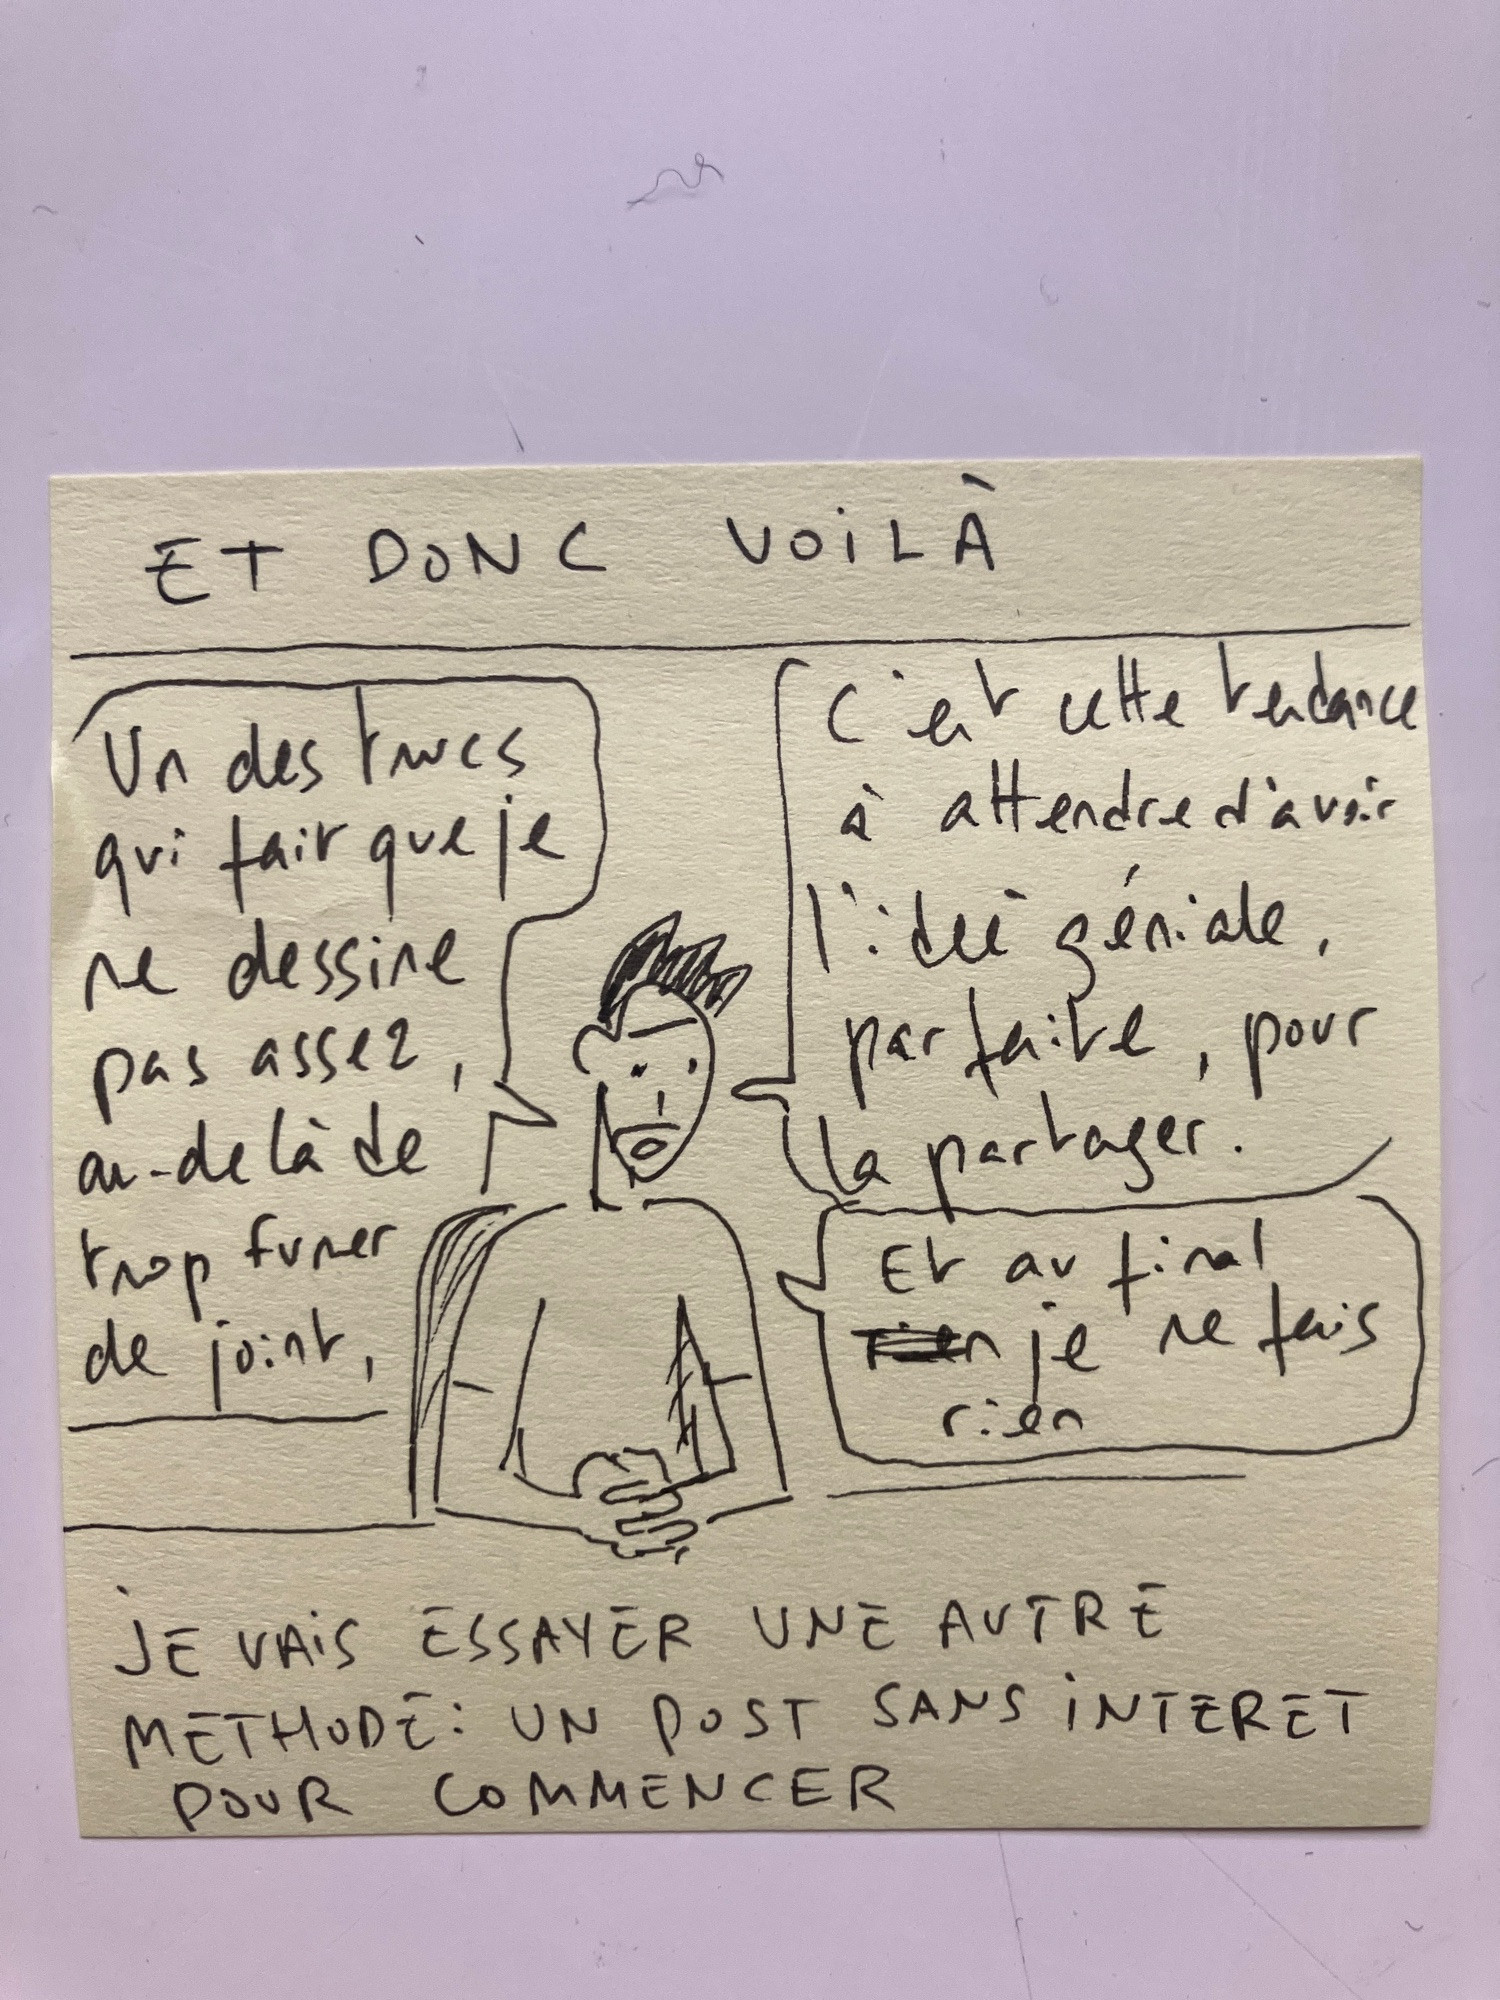 ET DONC VOILÀ
Un des trucs
qui fait que je
ne dessine
pas assez,
au-delà de
trop fumer
de joint,
C'est cette tendance
à attendre d'avoir
l'idée géniale,
parfaite, pour
la partager.
Et au final
rien je ne fais
rien
JE VAIS ESSAYER UNE AUTRE
METHODE: UN POST SANS INTERET
POUR COMMENCER